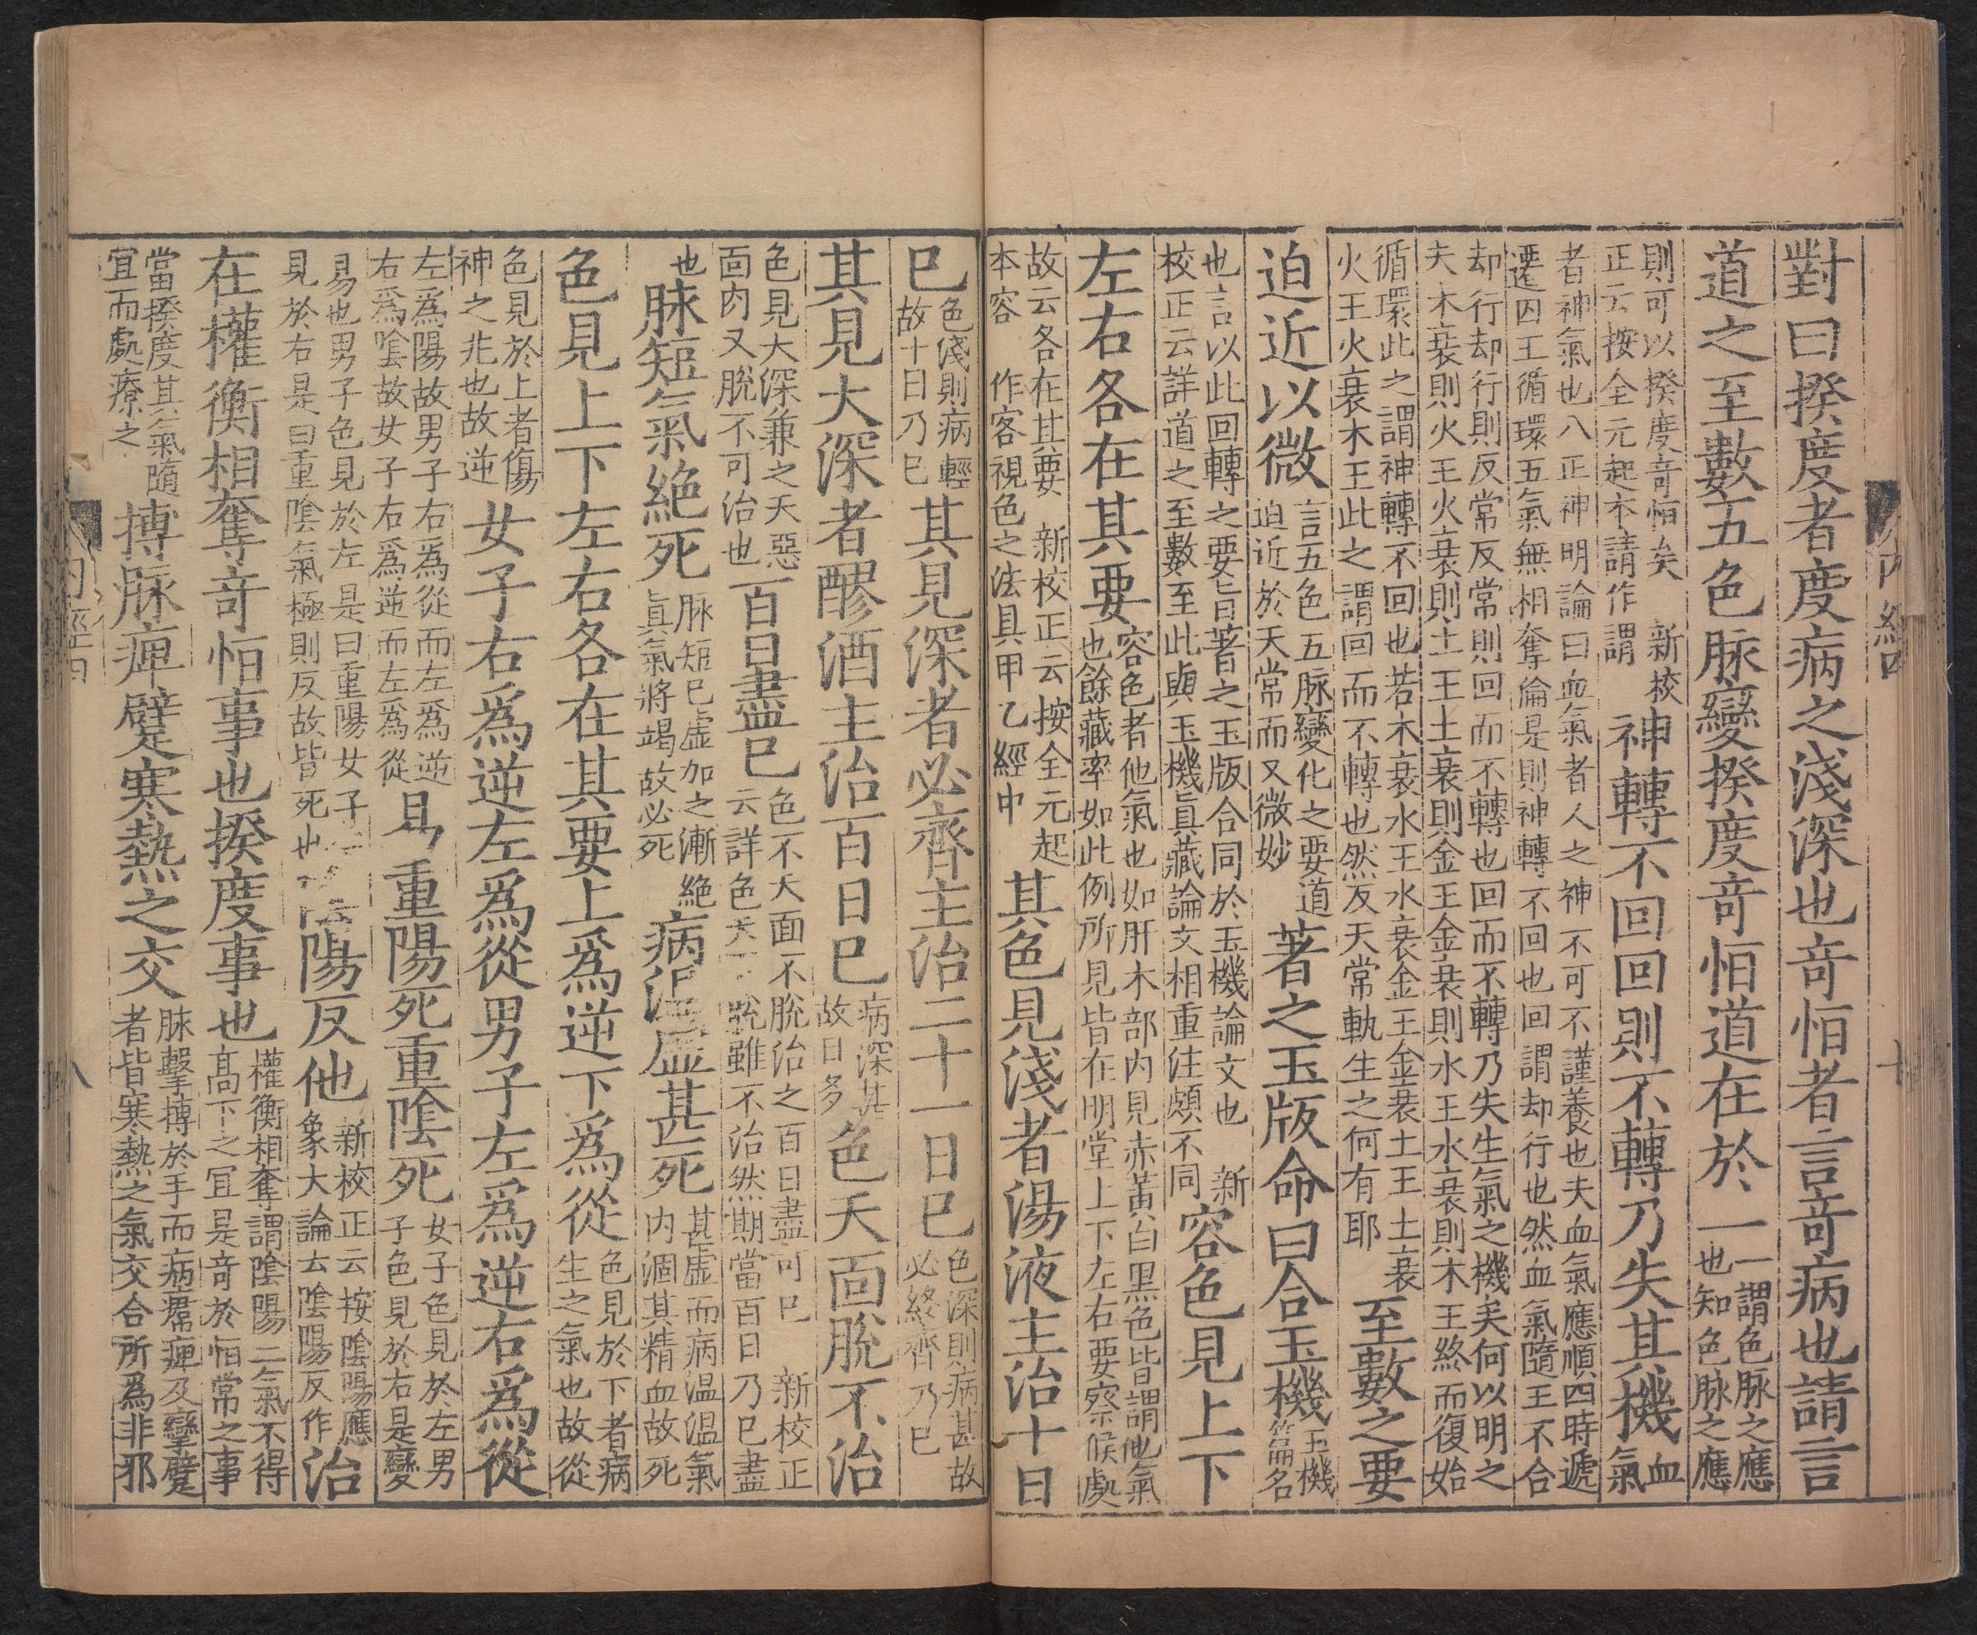 對曰揆度者度病之淺深也奇恒者言奇病也請言
道之至數五色脉變揆度奇恒道在於一一謂色脉之應也知色脉之應
則可以揆度奇恒矣 新校正云按全元起本請作謂神轉不回回則不轉乃失其機血氣
者神氣也八正神明論曰血氣者人之神不可不謹養也夫血氣應順四時遞遷囚王循環五氣無相奪倫是則神轉不回也回謂却行也然血氣隨王不合
却行却行則反常反常則回而不轉也回而不轉乃失生氣之機矣何以明之夫木衰則火王火衰則土王土衰則金王金衰則水王水衰則木王終而復始
循環此之謂神轉不回也若木衰水王水衰金王金衰土王土衰火王火衰木王此之謂回而不轉也然反天常軌生之何有耶至數之要
迫近以微言五色五脉變化之要道迫近於天常而又微妙著之玉版命曰合玉機玉機篇名
也言以此回轉之要旨著之玉版合同於玉機論文也 新校正云詳道之至數至此與玉機眞藏論文相重注頗不同容色見上下
左右各在其要容色者他氣也如肝木部内見赤黃白黑色皆謂他氣也餘藏率如此例所見皆在明堂上下左右要察候處
故云各在其要 新校正云按全元起本容作客視色之法具甲乙經中其色見淺者湯液主治十日
已色淺則病輕故十日乃已其見深者必齊主治二十一日已色深則病甚故必終齊乃已
其見大深者醪酒主治百日已病深甚故日多色夭面脫不治
色見大深兼之夭惡面肉又脫不可治也百日盡已色不夭面不脫治之百日盡可已 新校正云詳色夭脫雖不治然期當百日乃已盡
也脉短氣絕死脉短已虛加之漸絕眞氣將竭故必死病溫虛甚死甚虛而病溫溫氣内涸其精血故死
色見上下左右各在其要上爲逆下爲從色見於下者病生之氣也故從
色見於上者傷神之兆也故逆女子右爲逆左爲從男子左爲逆右爲從
左爲陽故男子右爲從而左爲逆右爲陰故女子右爲逆而左爲從易重陽死重陰死女子色見於左男子色見於右是變
易也男子色見於左是曰重陽女子見於右是曰重陰氣極則反故皆死也陰陽反他新校正云按陰陽應象大論云陰陽反作治
在權衡相奪奇恒事也揆度事也權衡相奪謂陰陽二氣不得高下之宜是奇於恒常之事
當揆度其氣隨宜而處療之搏脉痺躄寒熱之交脉擊搏於手而病㿏痺及攣躄者皆寒熱之氣交合所爲非邪
内經四
八